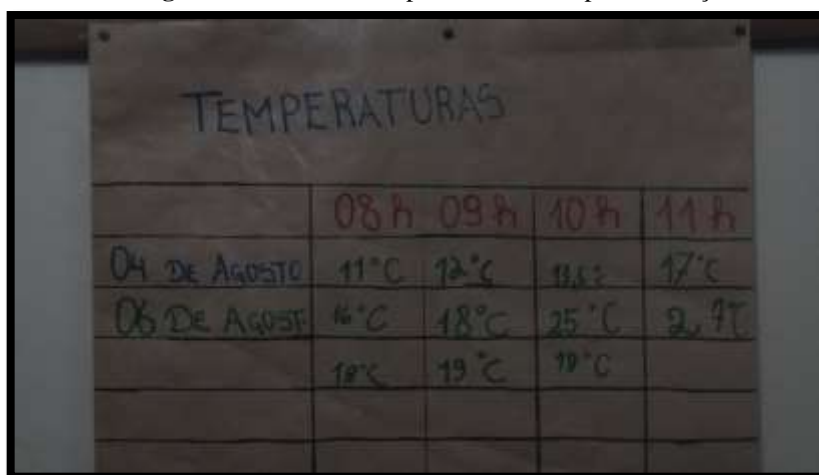 TEMPERATURAS
08 h 09 h 10 h 11 h
04 DE AGOSTO 11°C 12°C 17°C
06 DE AGOST 16°C 18°C 25°C
18°C 19°C 19°C